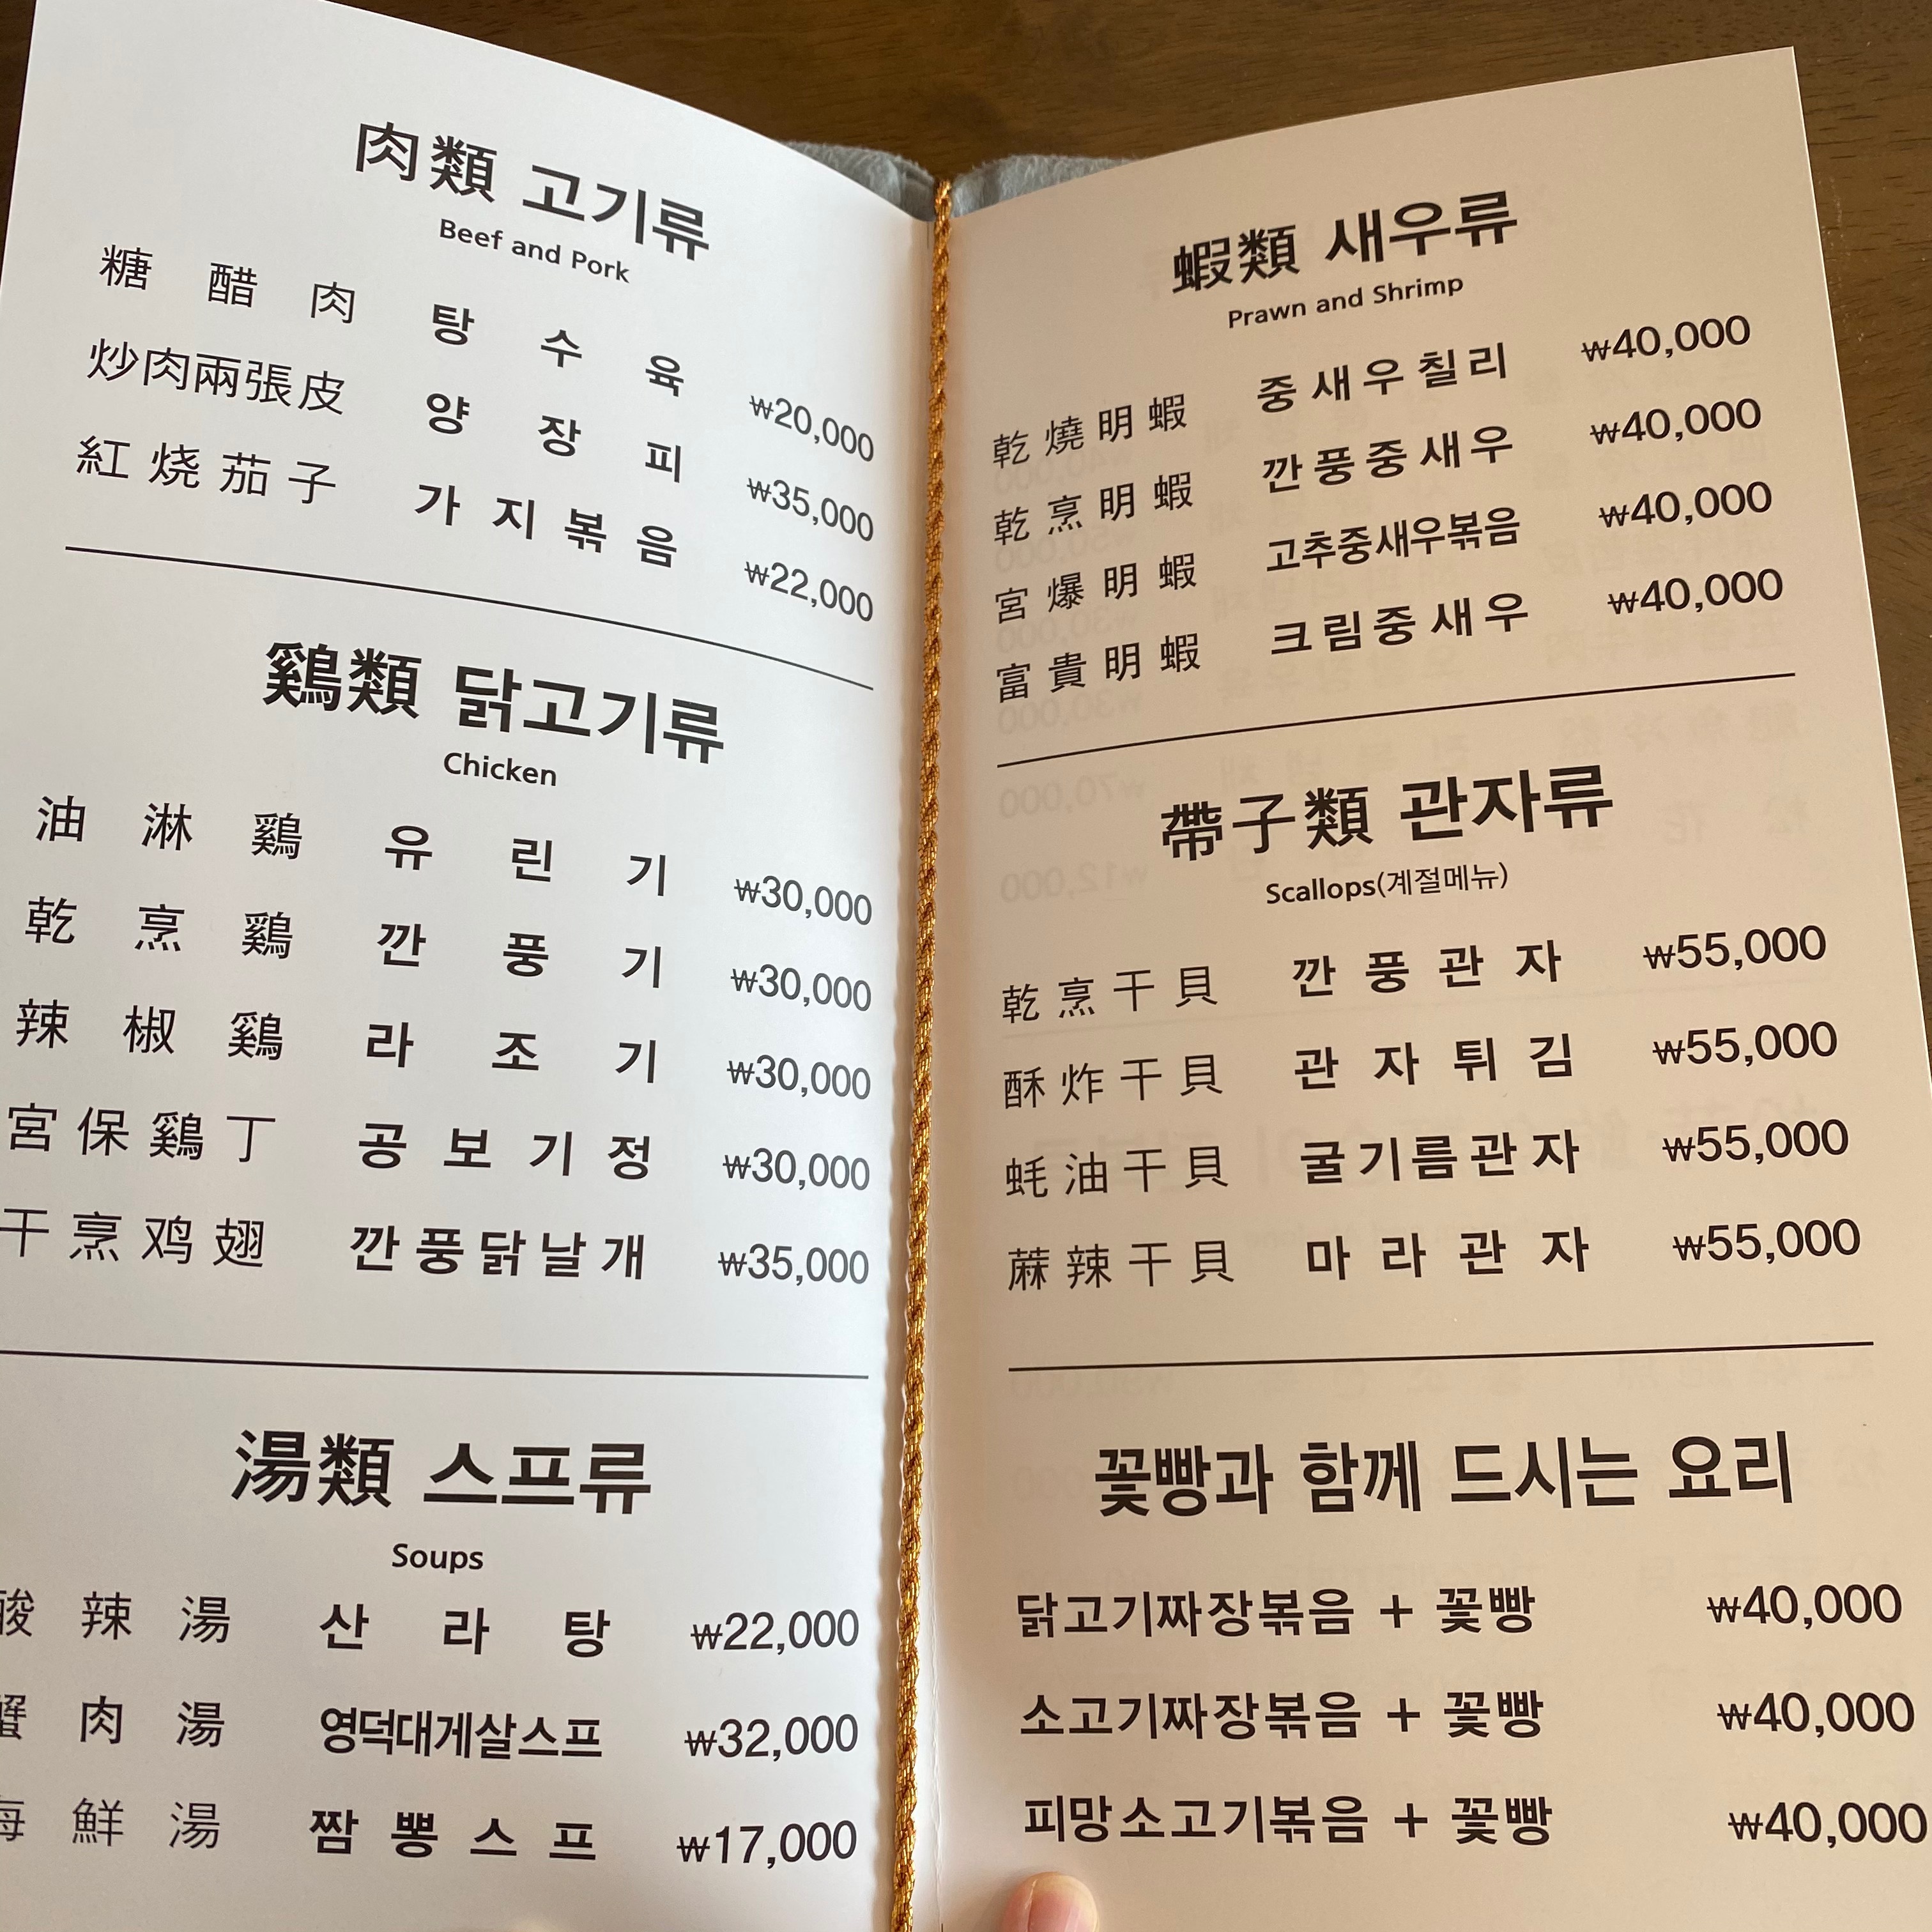 肉類 고기류
Beef and Pork
糖醋肉 탕수육 ₩20,000
炒肉兩張皮 양장피 ₩35,000
紅烧茄子 가지볶음 ₩22,000
鷄類 닭고기류
Chicken
油淋鷄 유린기 ₩30,000
乾烹鷄 깐풍기 ₩30,000
辣椒鷄 라조기 ₩30,000
宮保鷄丁 공보기정 ₩30,000
干烹鸡翅 깐풍닭날개 ₩35,000
湯類 스프류
Soups
酸辣湯 산라탕 ₩22,000
蟹肉湯 영덕대게살스프 ₩32,000
海鮮湯 짬뽕스프 ₩17,000
蝦類 새우류
Prawn and Shrimp
乾燒明蝦 중새우칠리 ₩40,000
乾烹明蝦 깐풍중새우 ₩40,000
宮爆明蝦 고추중새우볶음 ₩40,000
富貴明蝦 크림중새우 ₩40,000
帶子類 관자류
Scallops(계절메뉴)
乾烹干貝 깐풍관자 ₩55,000
酥炸干貝 관자튀김 ₩55,000
蚝油干貝 굴기름관자 ₩55,000
蔴辣干貝 마라관자 ₩55,000
꽃빵과 함께 드시는 요리
닭고기짜장볶음 + 꽃빵 ₩40,000
소고기짜장볶음 + 꽃빵 ₩40,000
피망소고기볶음 + 꽃빵 ₩40,000